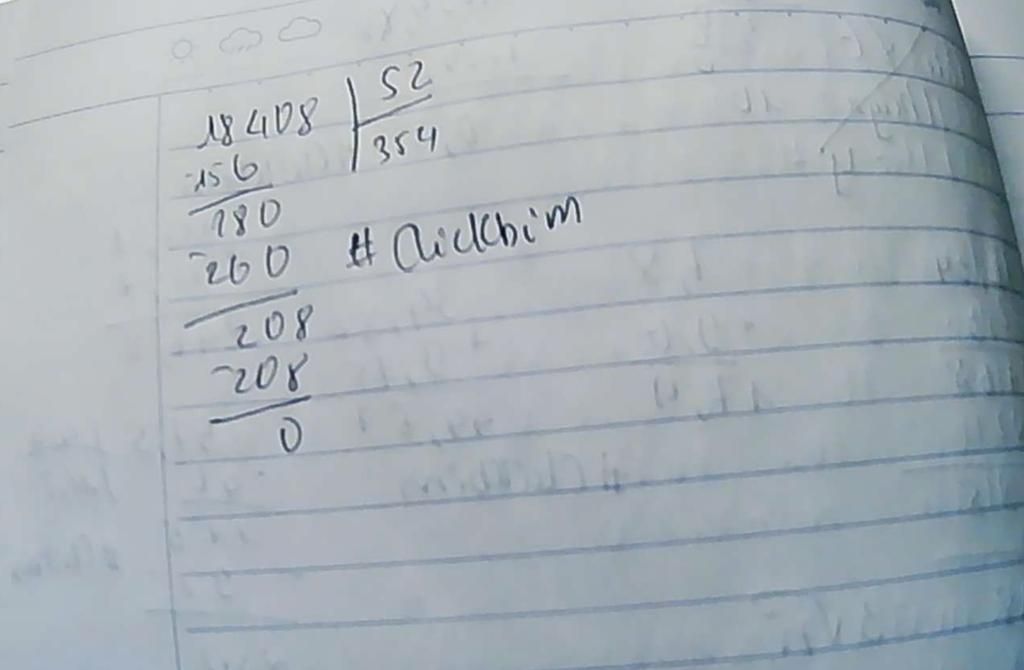 18408 52
-156 354
280
-260 # Chickbim
208
-208
0